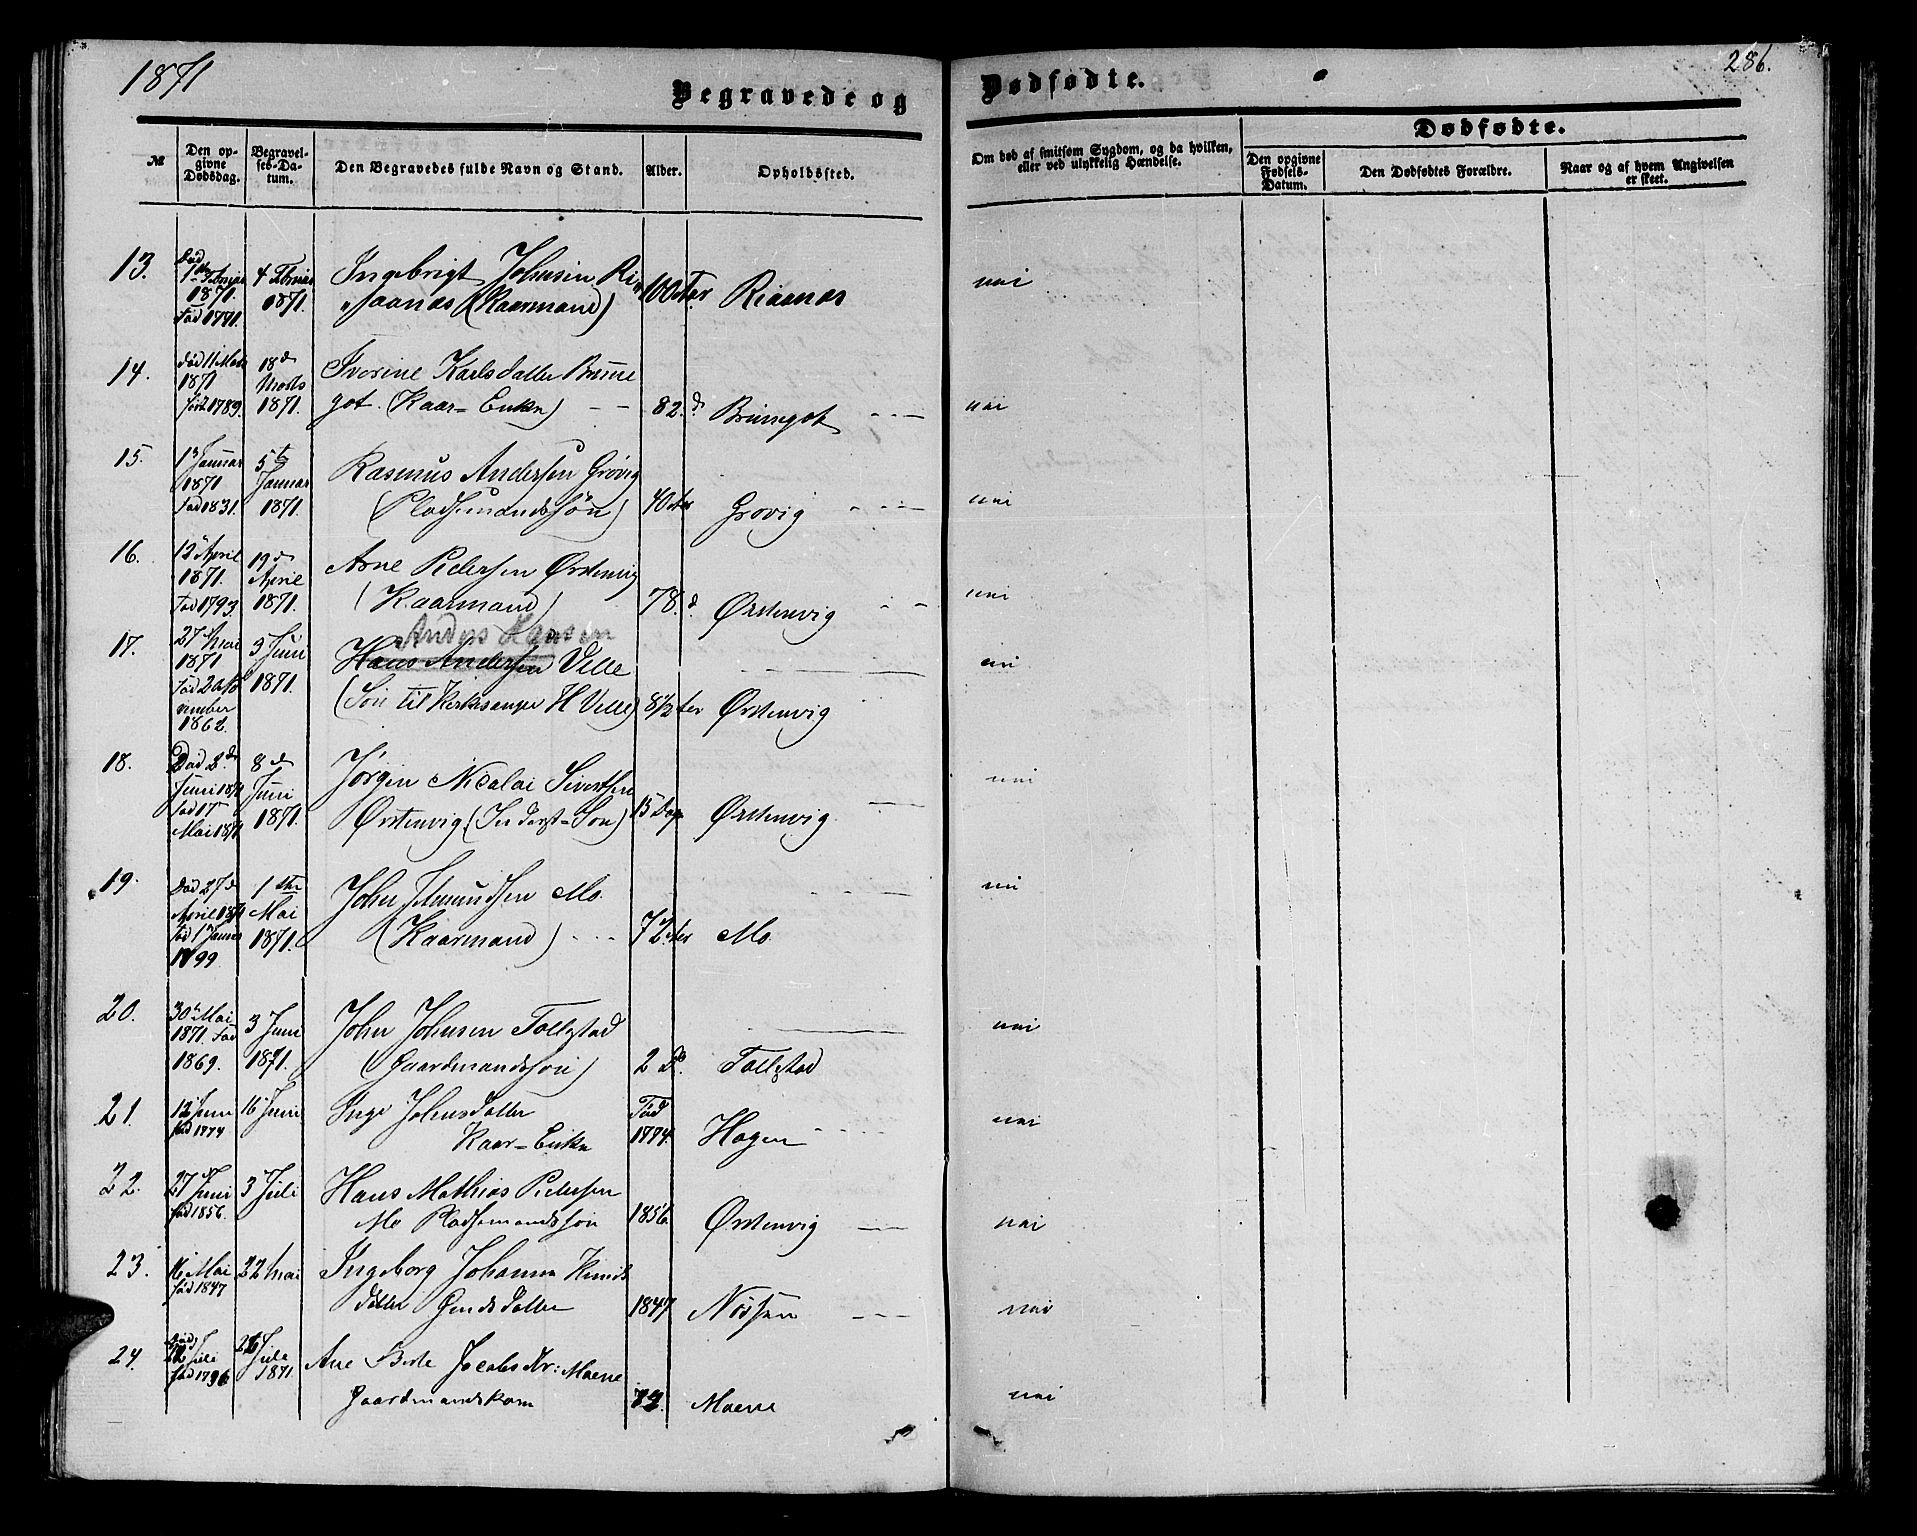 1871
286.
Begravede og
Dødfødte.
Dødfødte.
№
Den opgivne Dødsdag.
Begravelses-Datum.
Den Begravedes fulde Navn og Stand.
Alder.
Opholdssted.
Om død af smitsom Sygdom, og da hvilken, eller ved ulykkelig Hændelse.
Den opgivne Fødsels-Datum.
Den Dødfødtes Forældre.
Naar og af hvem Angivelsen er skeet.
13.
død 1ste Februar 1871. Fød 1771.
4 Februar 1871.
Ingebrigt Johnsen Ri
saanæs (Kaarmand)
100 Aar
Risanæs
nei
14.
død 11 Marts 1871 født 1789.
18d Marts 1871.
Iverine Karlsdatter Brune
got. (Kaar-Enke)
82. d.
Brunegot
nei
15.
1 Januar 1871 Fød 1831.
5t Januar 1871.
Rasmus Andersen Grøvig
(Pladsemandssøn)
40 Aar
Grøvig
nei
16.
12 April 1871. Fød 1793.
19d April 1871.
Arne Pedersen Ørstenvig
(Kaarmand)
78. d
Ørstenvig
nei
17.
27 Mai 1871 Fød 2 November 1862.
3 Juni 1871.
Anders Hansen
Hans Andersen Velle
(Søn til Kirkesanger H Velle)
8 1/2 Aar
Ørstenvig
nei
18.
Død 2d Juni 1871 Fød 17 Mai 1871
8d Juni 1871.
Jørgen Nicolai Sivertsen
Ørstenvig, (Inderst-Søn)
15 Dage
Ørstenvig
nei
19.
Død 27d April 1871 fød 1 Januar 1799
1ste Mai 1871.
John Amundsen Mo
(Kaarmand)
72 Aar
Mo
nei
20.
30te Mai 1871. Fød 1869.
3 Juni 1871.
John Johnsen Follestad
(Gaardmandssøn)
2 Do.
Follestad
nei
21.
12 Juni fød 1774
16 Juni
Inge Johnsdatter
Kaar-Enke
Fød 1774.
Hagen
nei
22.
27 Juni fød 1856.
3 Juli
Hans Mathias Pedersen
Mo Pladsemandssøn
1856
Ørstenvig
nei
23.
16 Mai fød 1847
22 Mai
Ingeborg Johanna Knuds
datter
1847
nei
24.
død 22 Juli fød 1796
26 Juli 1871
Ane Berte Jacobsdr: Moene
Gaardmandskone
Moene
nei